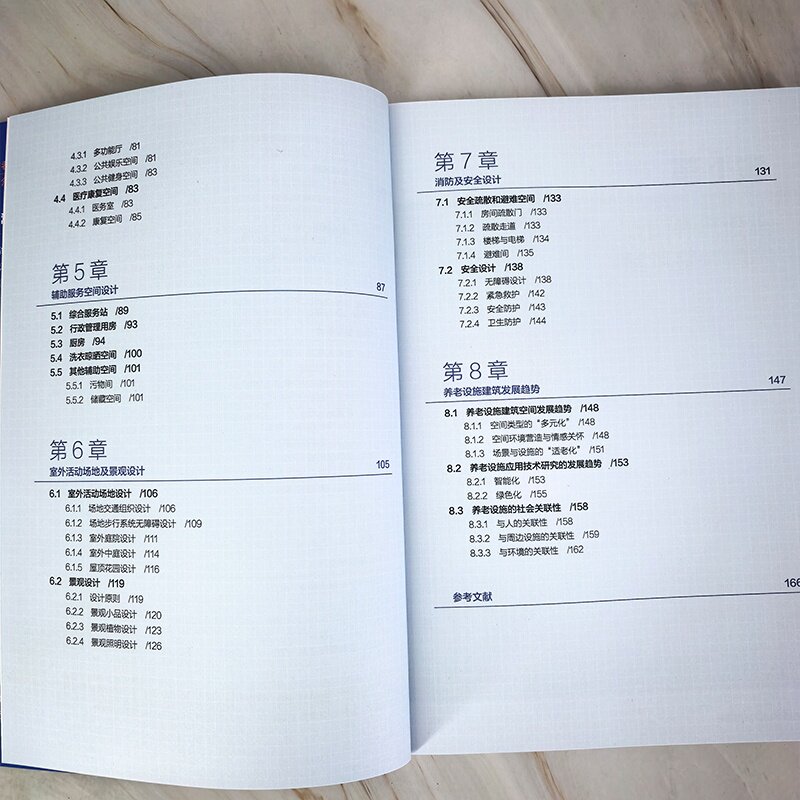 4.3.1 多功能厅 /81
4.3.2 公共娱乐空间 /81
4.3.3 公共健身空间 /83
4.4 医疗康复空间 /83
4.4.1 医务室 /83
4.4.2 康复空间 /85
第5章
辅助服务空间设计 87
5.1 综合服务站 /89
5.2 行政管理用房 /93
5.3 厨房 /94
5.4 洗衣晾晒空间 /100
5.5 其他辅助空间 /101
5.5.1 污物间 /101
5.5.2 储藏空间 /101
第6章
室外活动场地及景观设计 105
6.1 室外活动场地设计 /106
6.1.1 场地交通组织设计 /106
6.1.2 场地步行系统无障碍设计 /109
6.1.3 室外庭院设计 /111
6.1.4 室外中庭设计 /114
6.1.5 屋顶花园设计 /116
6.2 景观设计 /119
6.2.1 设计原则 /119
6.2.2 景观小品设计 /120
6.2.3 景观植物设计 /123
6.2.4 景观照明设计 /126
第7章
消防及安全设计 131
7.1 安全疏散和避难空间 /133
7.1.1 房间疏散门 /133
7.1.2 疏散走道 /133
7.1.3 楼梯与电梯 /134
7.1.4 避难间 /135
7.2 安全设计 /138
7.2.1 无障碍设计 /138
7.2.2 紧急救护 /142
7.2.3 安全防护 /143
7.2.4 卫生防护 /144
第8章
养老设施建筑发展趋势 147
8.1 养老设施建筑空间发展趋势 /148
8.1.1 空间类型的“多元化” /148
8.1.2 空间环境营造与情感关怀 /148
8.1.3 场景与设施的“适老化” /151
8.2 养老设施应用技术研究的发展趋势 /153
8.2.1 智能化 /153
8.2.2 绿色化 /155
8.3 养老设施的社会关联性 /158
8.3.1 与人的关联性 /158
8.3.2 与周边设施的关联性 /159
8.3.3 与环境的关联性 /162
参考文献 166